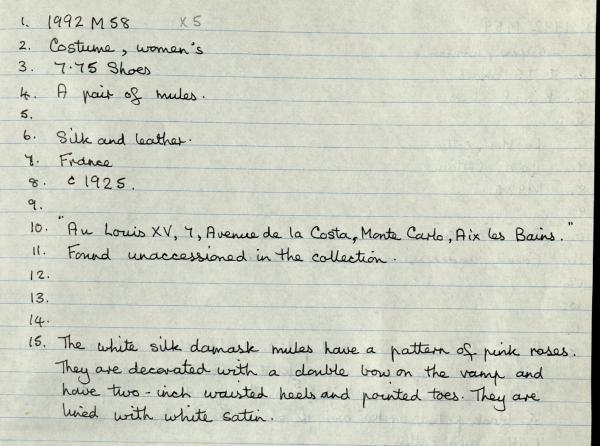 1. 1992 M 58 x 5
2. Costume, women's
3. 7.75 Shoes
4. A pair of mules.
5.
6. Silk and leather.
7. France
8. c 1925.
9.
10. "Au Louis XV, 7, Avenue de la Costa, Monte Carlo, Aix les Bains."
11. Found unaccessioned in the collection.
12.
13.
14.
15. The white silk damask mules have a pattern of pink roses.
They are decorated with a double bow on the vamp and
have two-inch waisted heels and pointed toes. They are
lined with white satin.